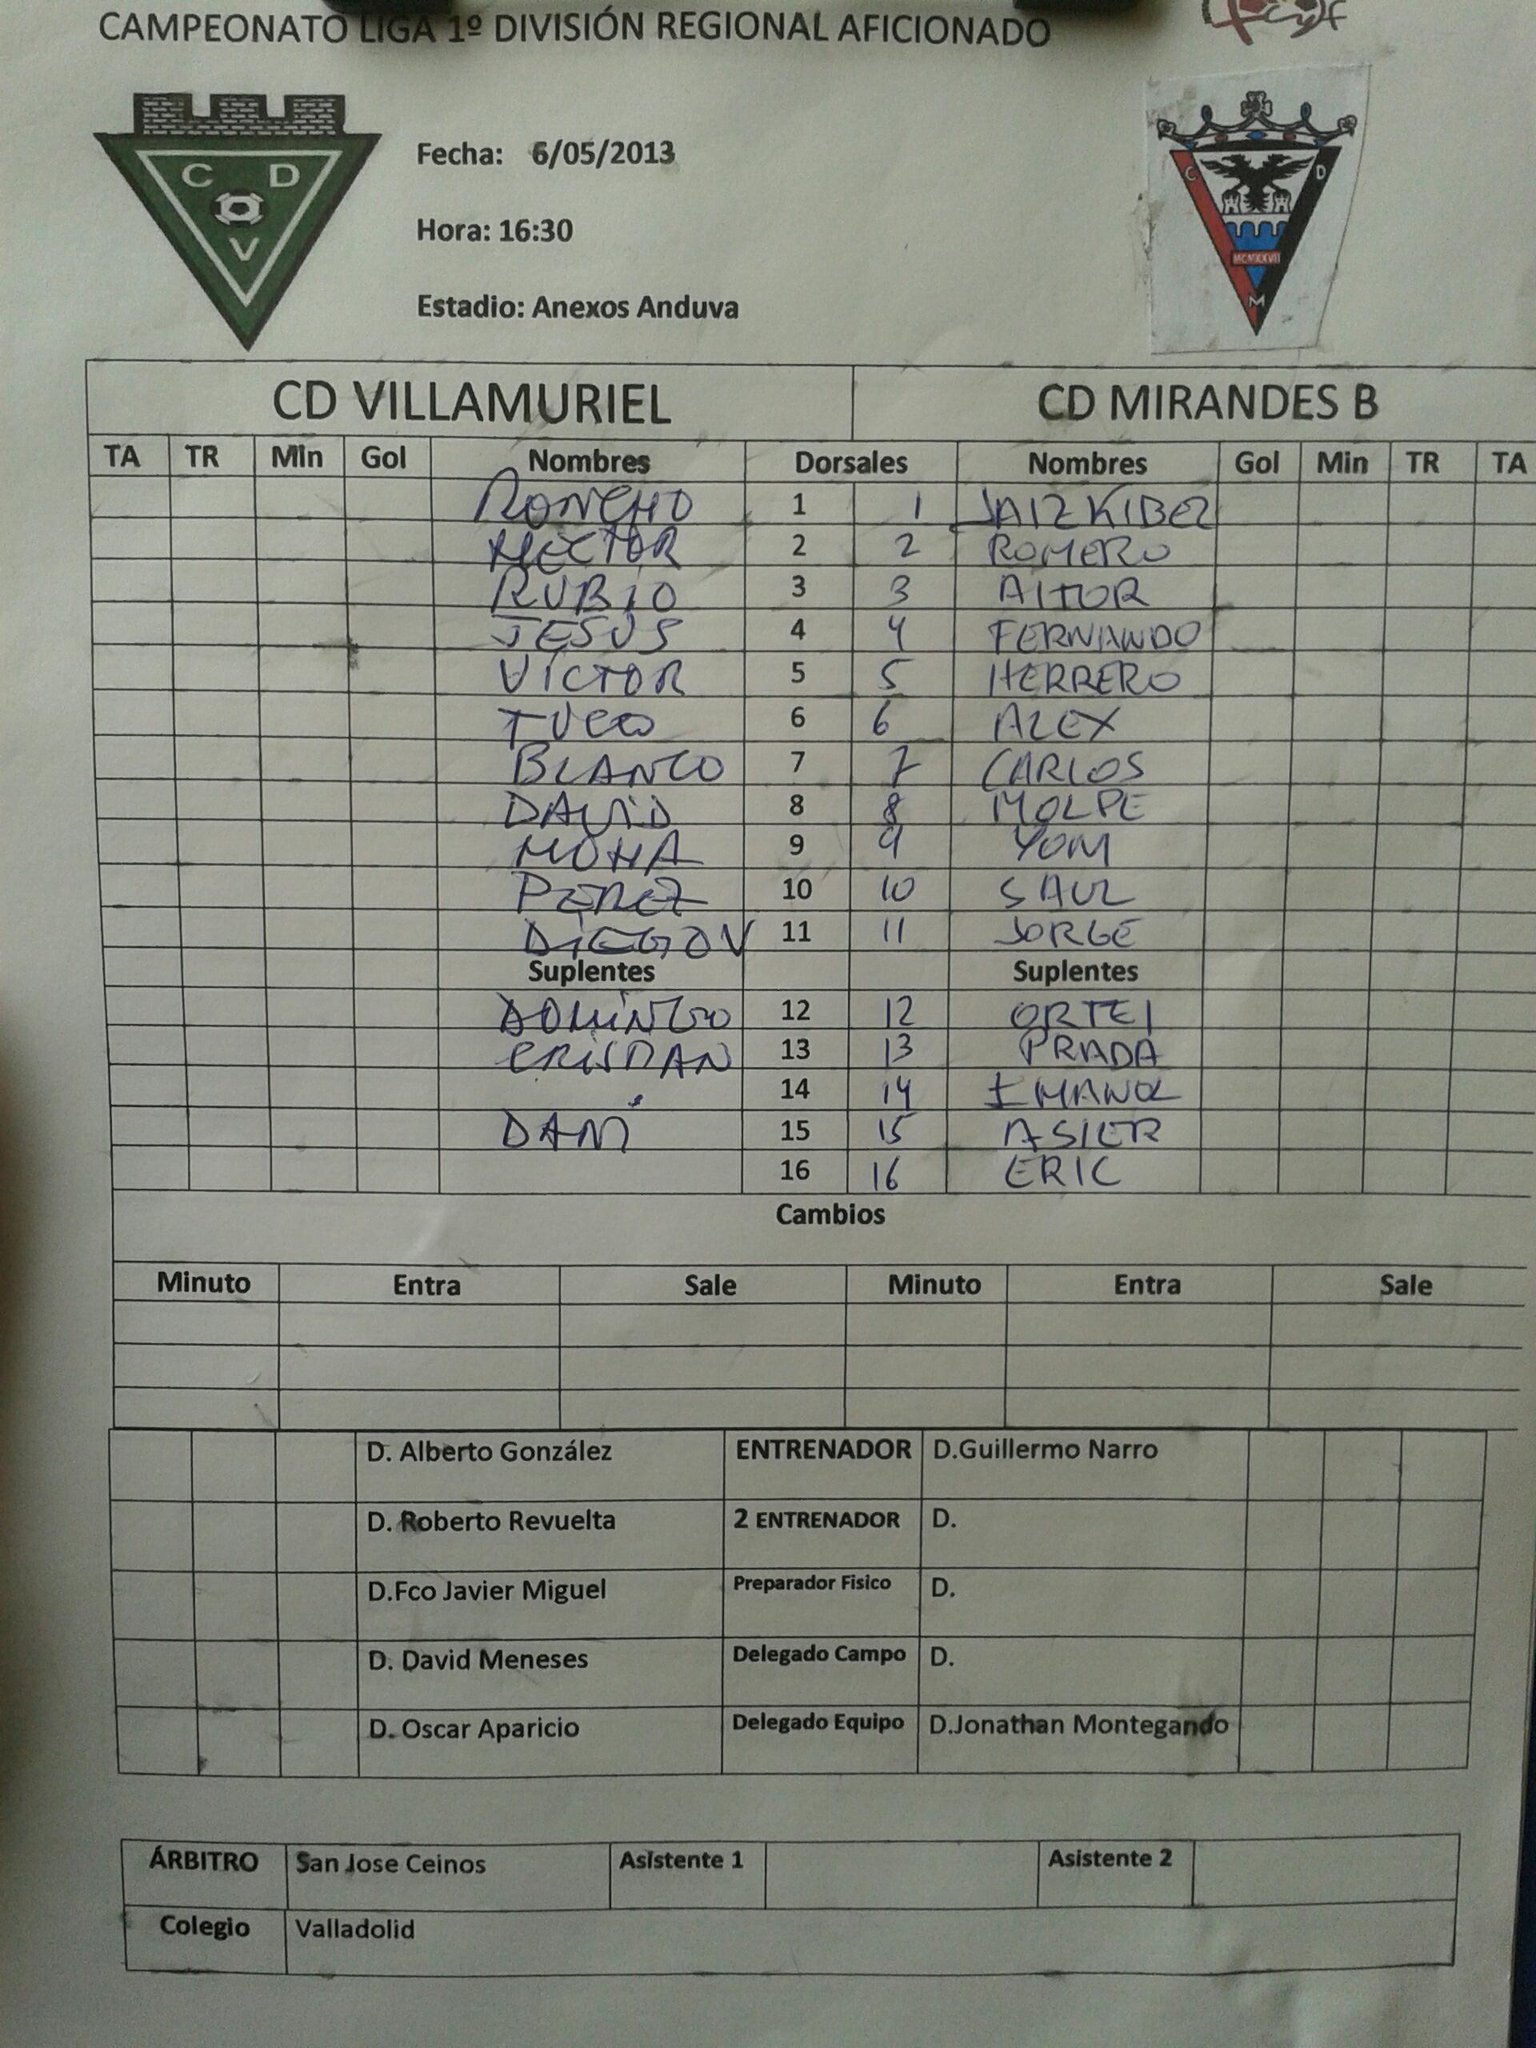 CAMPEONATO LIGA 1º DIVISIÓN REGIONAL AFICIONADO
C D V
Fecha: 6/05/2013
Hora: 16:30
Estadio: Anexos Anduva
C D
MCMXXVII
M
CD VILLAMURIEL CD MIRANDES B
TA TR Min Gol Nombres Dorsales Nombres Gol Min TR TA
RONCHO 1 1 JAIZKIBEL
HECTOR 2 2 ROMERO
RUBIO 3 3 AITOR
JESUS 4 4 FERNANDO
VICTOR 5 5 HERRERO
TUCO 6 6 ALEX
BLANCO 7 7 CARLOS
DAVID 8 8 MOLPE
MOHA 9 9 YOM
PEREZ 10 10 SAUL
DIEGO V 11 11 JORGE
Suplentes Suplentes
DOMINGO 12 12 ORTEI
CRISTIAN 13 13 PRADA
14 14 IMANOL
DANI 15 15 ASIER
16 16 ERIC
Cambios
Minuto Entra Sale Minuto Entra Sale
D. Alberto González ENTRENADOR D.Guillermo Narro
D. Roberto Revuelta 2 ENTRENADOR D.
D.Fco Javier Miguel Preparador Fisico D.
D. David Meneses Delegado Campo D.
D. Oscar Aparicio Delegado Equipo D.Jonathan Montegando
ÁRBITRO San Jose Ceinos Asistente 1 Asistente 2
Colegio Valladolid